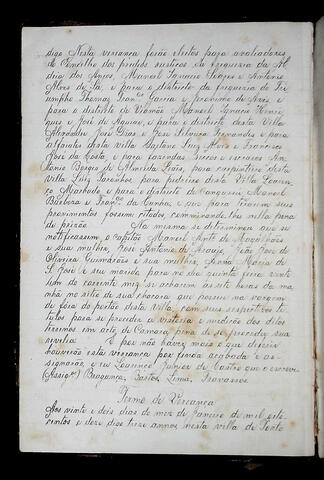 digo Nesta vereança forão eleitos para avaliadores
do Concelho dos predios rusticos da freguezia da Al
dêa dos Anjos, Manoel Ignacio Soares e Antonio
Alves de Sá, e para o districto da freguezia do Tri
umpho Thomas Fran.co Garcia e Jeronimo de
e para o districto de Viamão Manoel Ignacio Henri
ques e José de Aguiar, e para o districto desta Villa
Alexandre José Dias, e José Silveira Fernandes e para
alfaiates desta villa Caetano Luiz Alves e Francisco
José da Costa, e para fazendas seccas e An
tonio Borges de Almeida Leães, para carpinteiro desta
villa Luiz para pedreiros desta Villa Louren
ço Machado e para o districto de Cangussú Manoel
Barbosa e Fran.co da Cunha, e que para tirarem seus
provimentos fossem citados, comminando-lhes nella pena
de prizão. Na mesma se determinou que se
notificassem o Capitão Manoel Ant.o de Magalhães
e sua mulher, José Antonio de Araujo, João José de
Oliveira Guimarães e sua mulher, Anna Maria de
S. José e seu marido para no dia quinta feira vinte
sem do corrente mez se acharem ás sete horas da ma
nhã no sitio de sua chacara que possue na vargem
de fóra do portão desta villa, com seus respectivos ti
tulos para se proceder a vistoria e medição dos ditos
terrenos em acto de Camara, pena de se proceder sua
revelia. E por não haver mais o que deferir
houverão esta vereança por finda acabada e as-
signarão e eu Lourenço Junior de Castro que o escrevi
(Assig.os) Bragança, Bastos, Lima, Travassos
Termo de Vereança
Aos vinte e dois dias do mez de Janeiro de mil oito
centos e doze digo treze annos nesta villa de Porto